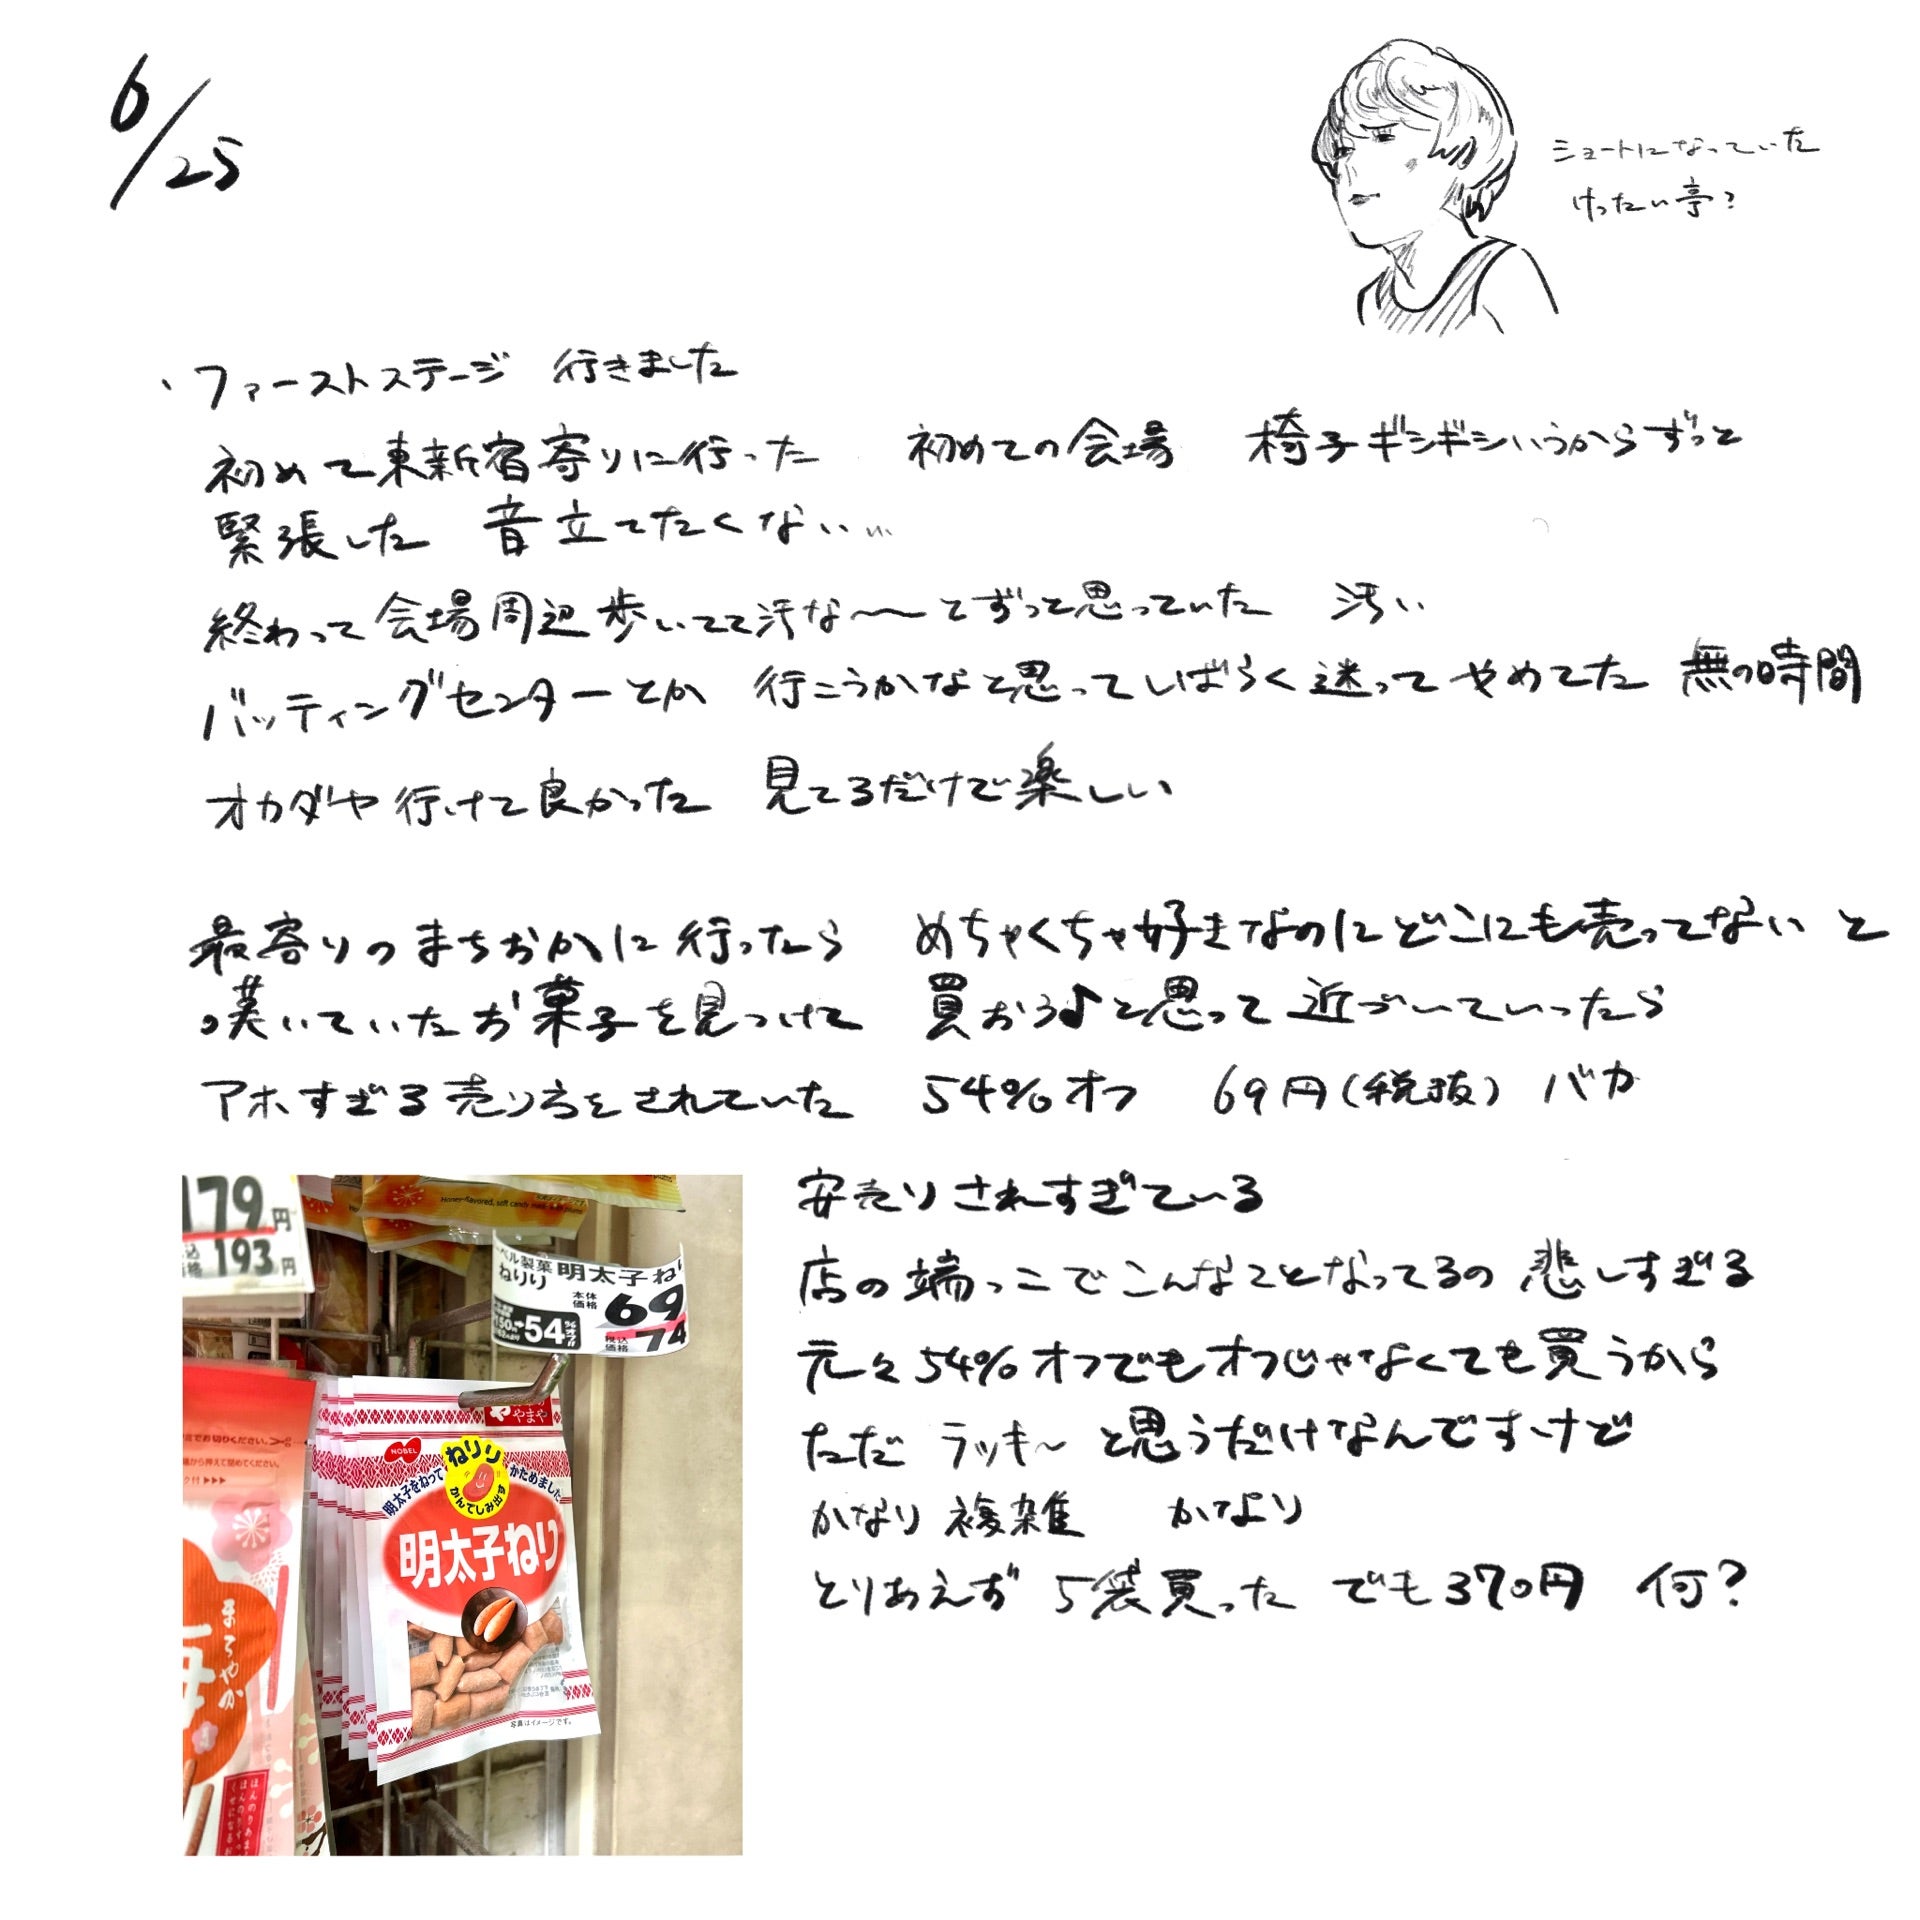 6/25
ショートになっていた
けったい亭?
・ファーストステージ 行きました
初めて東新宿寄りに行った 初めての会場 椅子ギシギシいうからずっと
緊張した 音立てたくない…
終わって会場周辺歩いてて汚な〜〜とずっと思っていた 汚い
バッティングセンターとか 行こうかなと思ってしばらく迷ってやめてた 無の時間
オカダヤ行けて良かった 見てるだけで楽しい
最寄りのまちおかに行ったら めちゃくちゃ好きなのにどこにも売ってないと
嘆いていたお菓子を見つけて 買おう♪と思って近づいていったら
アホすぎる売り方をされていた 54%オフ 69円(税抜) バカ
安売りされすぎている
店の端っこでこんなことなってるの悲しすぎる
元々54%オフでもオフじゃなくても買うから
ただ ラッキ〜 と思うだけなんですけど
かなり複雑 かなり
とりあえず 5袋買った でも370円 何?
179円
193円
価格
Honey-flavored, soft candy
ベル製菓
ねりり 明太子ねり
本体
価格 69
150円 54%オフ!!
税込
価格 74
やまや
NOBEL
ねりり
かんでしみ出す
明太子をねって かためました
明太子ねり
写真はイメージです。
でお切りください。
まろやか
ほんのりあま
ほんのりすっ
くせになる